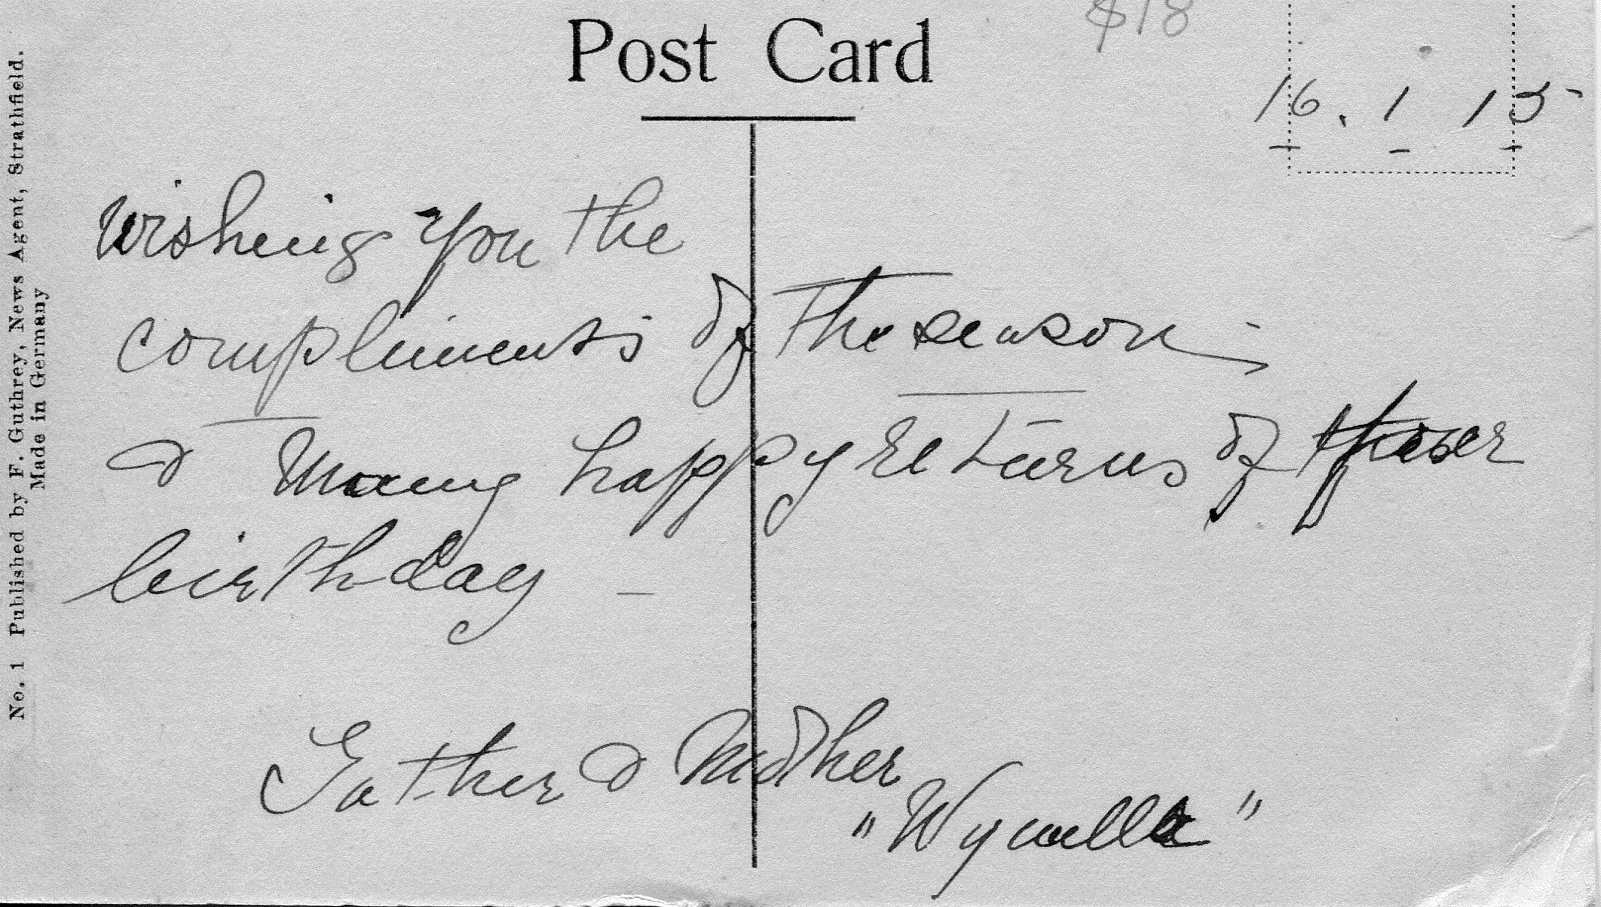 Post Card
$18
16.1.15
Wishing you the
compliments of the season
& Many happy returns of
birthday -
Father & Mother
No. 1 Published by F. Guthrey, News Agent, Strathfield.
Made in Germany